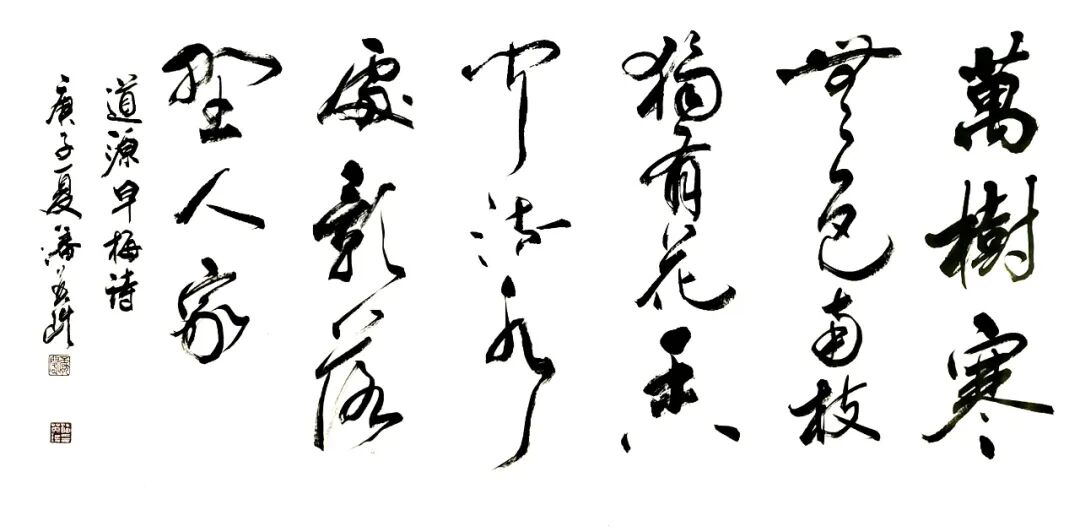 萬樹寒
無色南枝
獨有花香
聞流水
處影落
野人家
道源早梅詩
庚子夏潘